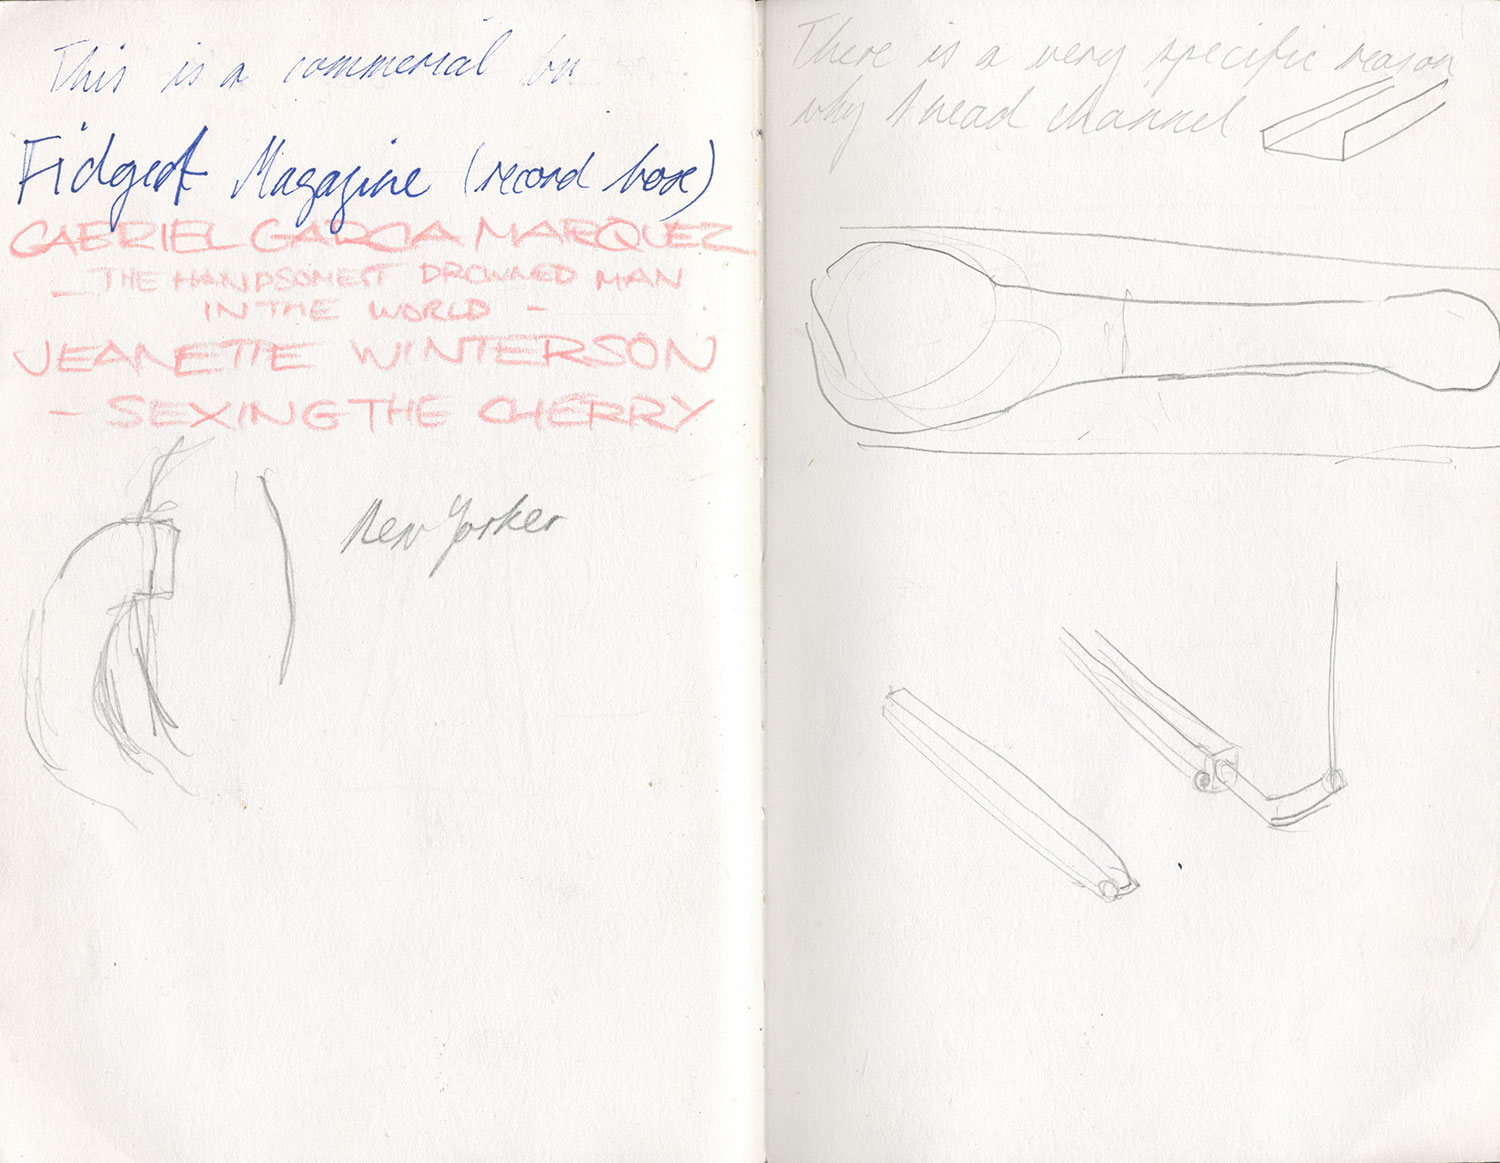 This is a commercial bu
Fidget Magazine (record box)
GABRIEL GARCIA MARQUEZ
- THE HANDSOMEST DROWNED MAN
IN THE WORLD -
JEANETTE WINTERSON
- SEXING THE CHERRY
New Yorker
There is a very specific reason
why I need channel